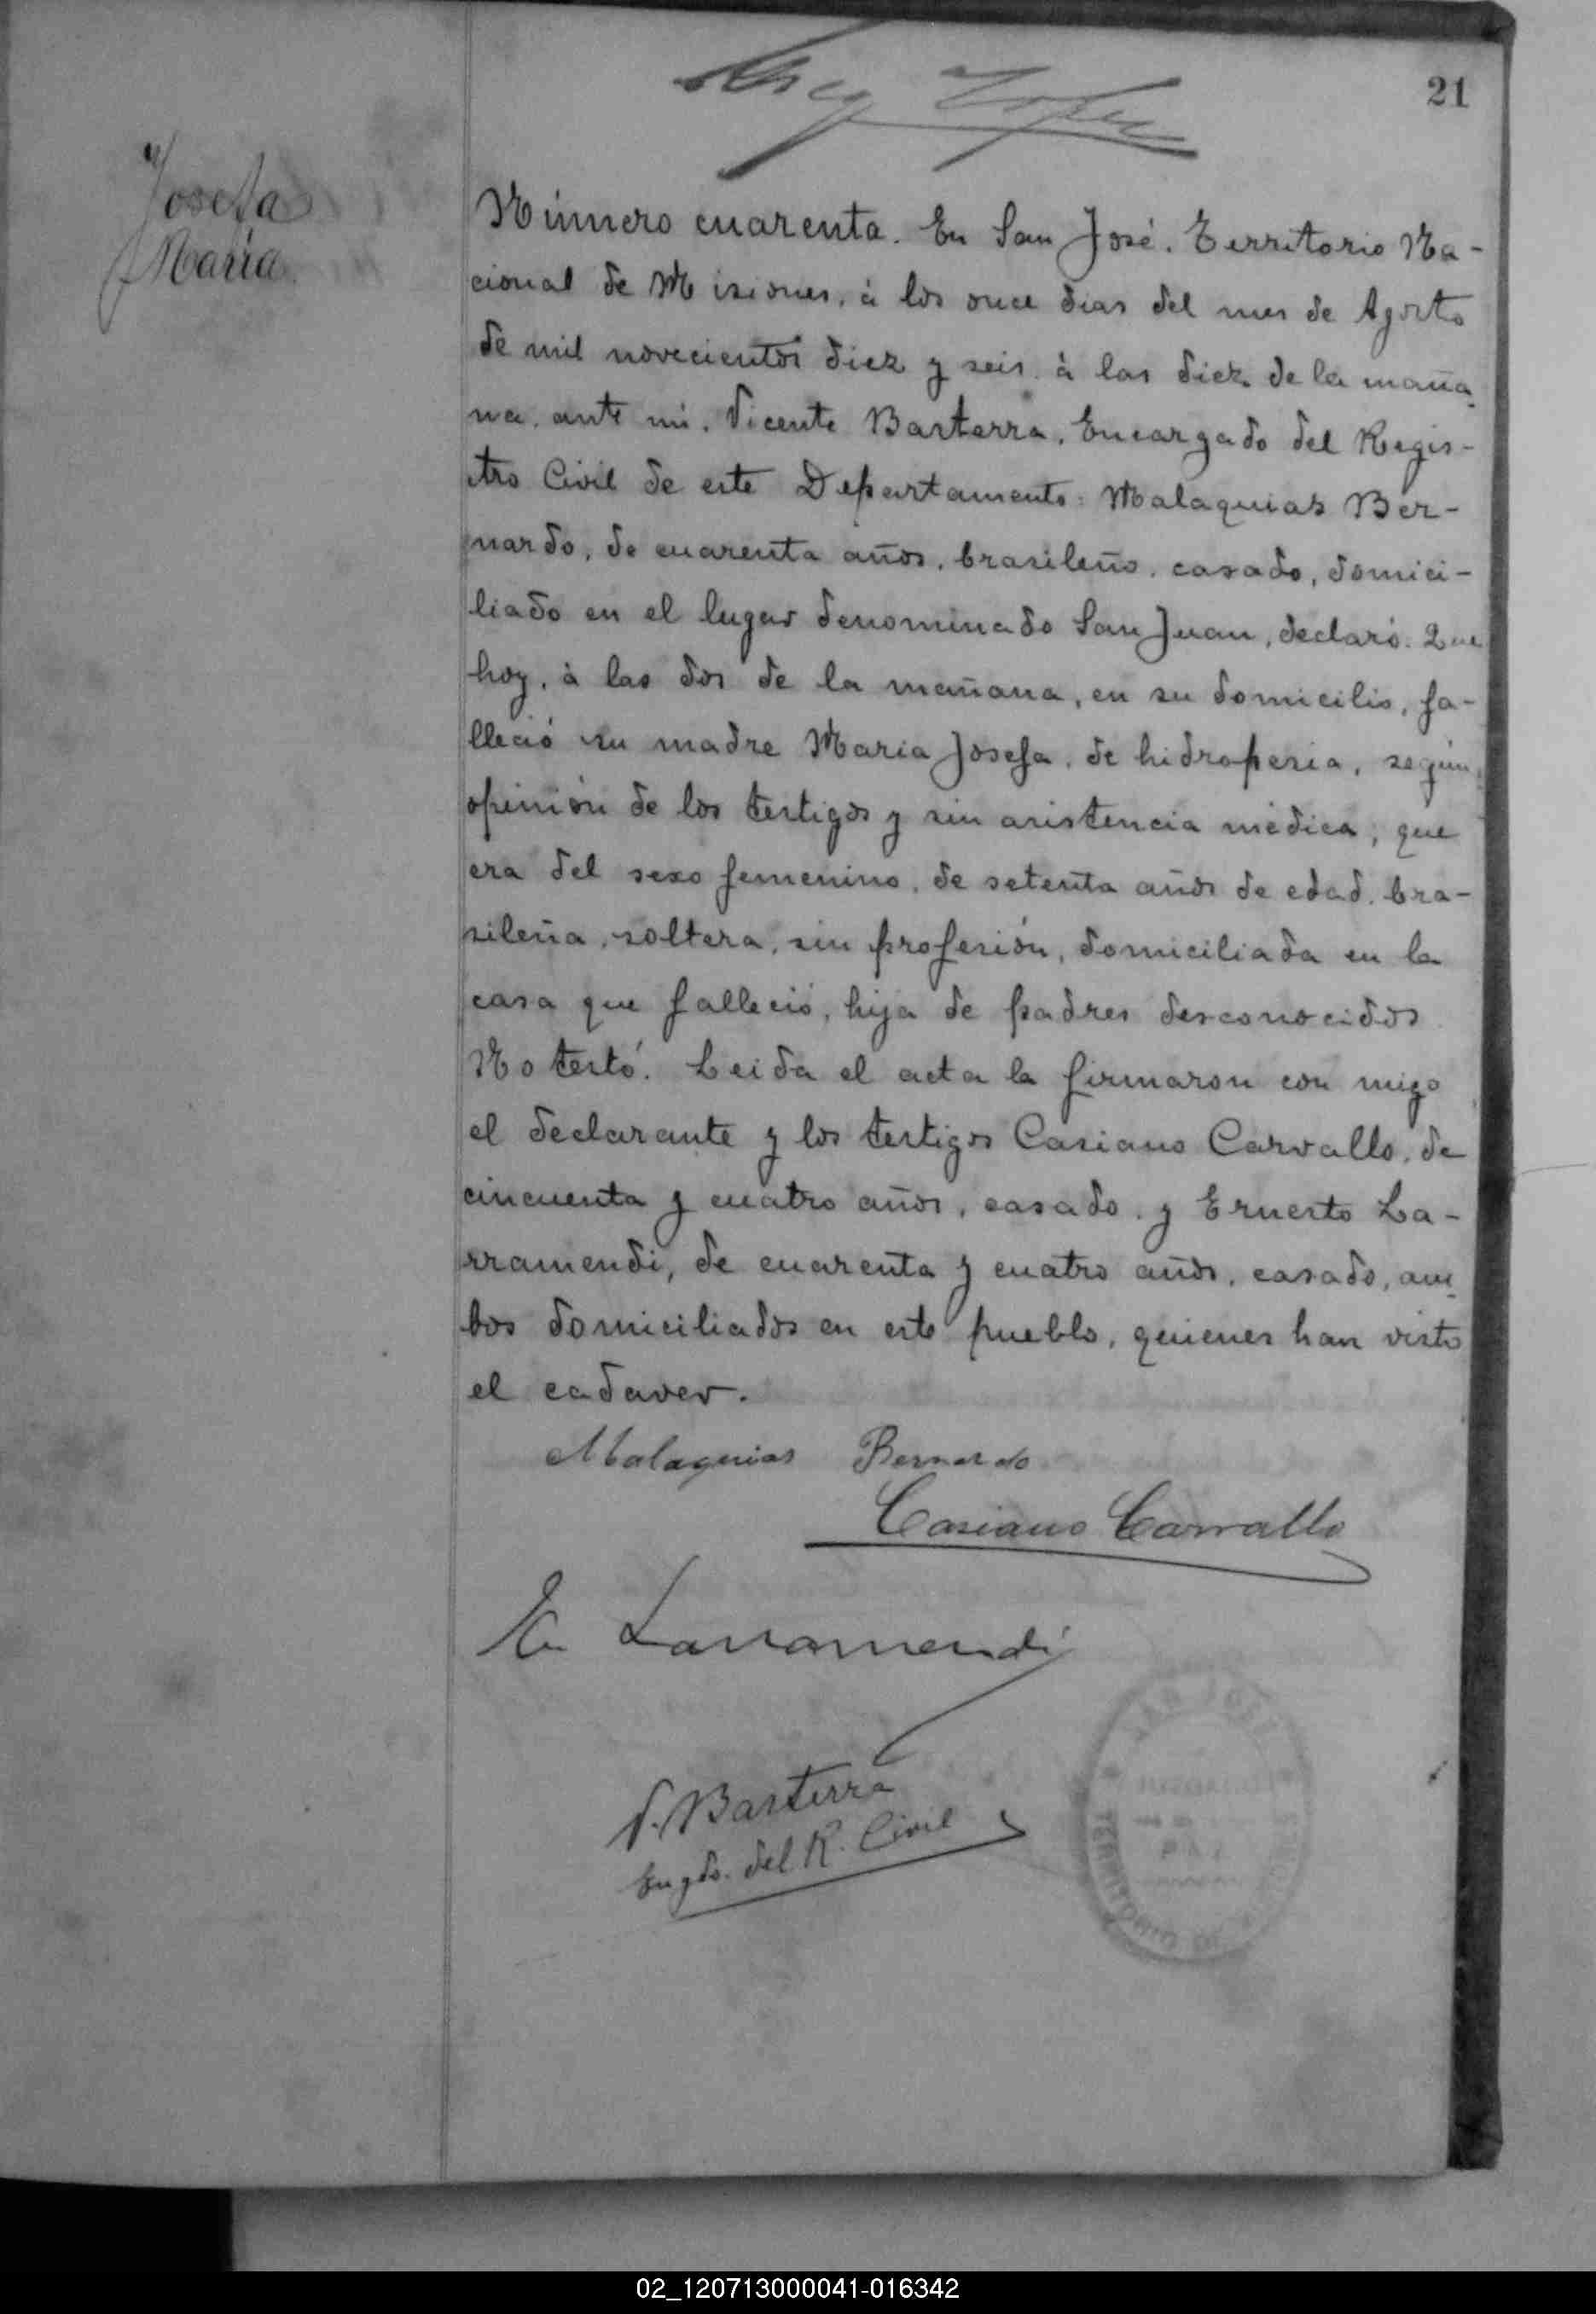 21
Josefa
María
Número cuarenta. En San José. Territorio Na-
cional de Misiones, à los once dias del mes de Agosto
de mil novecientos diez y seis à las diez de la maña
na, ante mi, Vicente Basterra, Encargado del Regis-
tro Civil de este Departamento: Malaquias Ber-
nardo, de cuarenta años, brasileño, casado, domici-
liado en el lugar denominado San Juan, declaró: Que
hoy, à las dos de la mañana, en su domicilio, fa-
lleció su madre Maria Josefa, de hidropesia, según
opinión de los testigos y sin asistencia médica; que
era del sexo femenino, de setenta años de edad, bra-
sileña, soltera, sin profesión, domiciliada en la
casa que falleció, hija de padres desconocidos
No testó. Leida el acta la firmaron con migo
el declarante y los testigos Casiano Carvallo, de
cincuenta y cuatro años, casado, y Ernesto La-
rramendi, de cuarenta y cuatro años, casado, am
bos domiciliados en este pueblo, quienes han visto
el cadaver.
Malaquias Bernardo
Casiano Carvallo
E Larramendi
V. Basterra
Engdo. del R. Civil
SAN JOSÉ
TERRITORIO DE
02_120713000041-016342